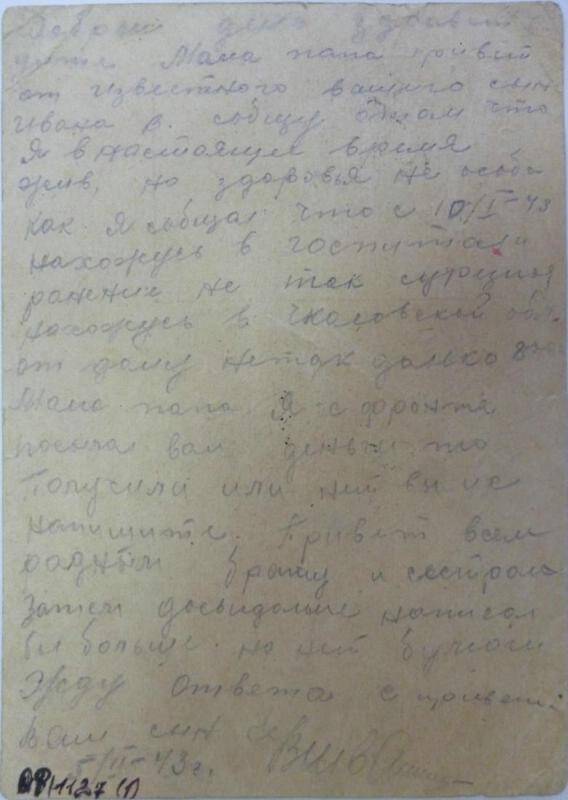 Добрый день здравст
уйте Мама папа привет
от известного вашего сын
Ивана В. сообщу о том что
Я в настоящее время
жив, но здоровья не особо
как Я собщал что с 10/I-43
нахожусь в госпитале
ранение не так
нахожусь в Чкаловской обл.
от дому не так далько
Мама папа Я с фронта
посылал вам деньги то
Получили или нет вы их
напишите. Привет всем
родным братцу и сестрам
Затем досвидание написал
бы больше но нет бумаги
Жду ответа с приветом
Ваш сын
5/II-43 г.
1127 (1)